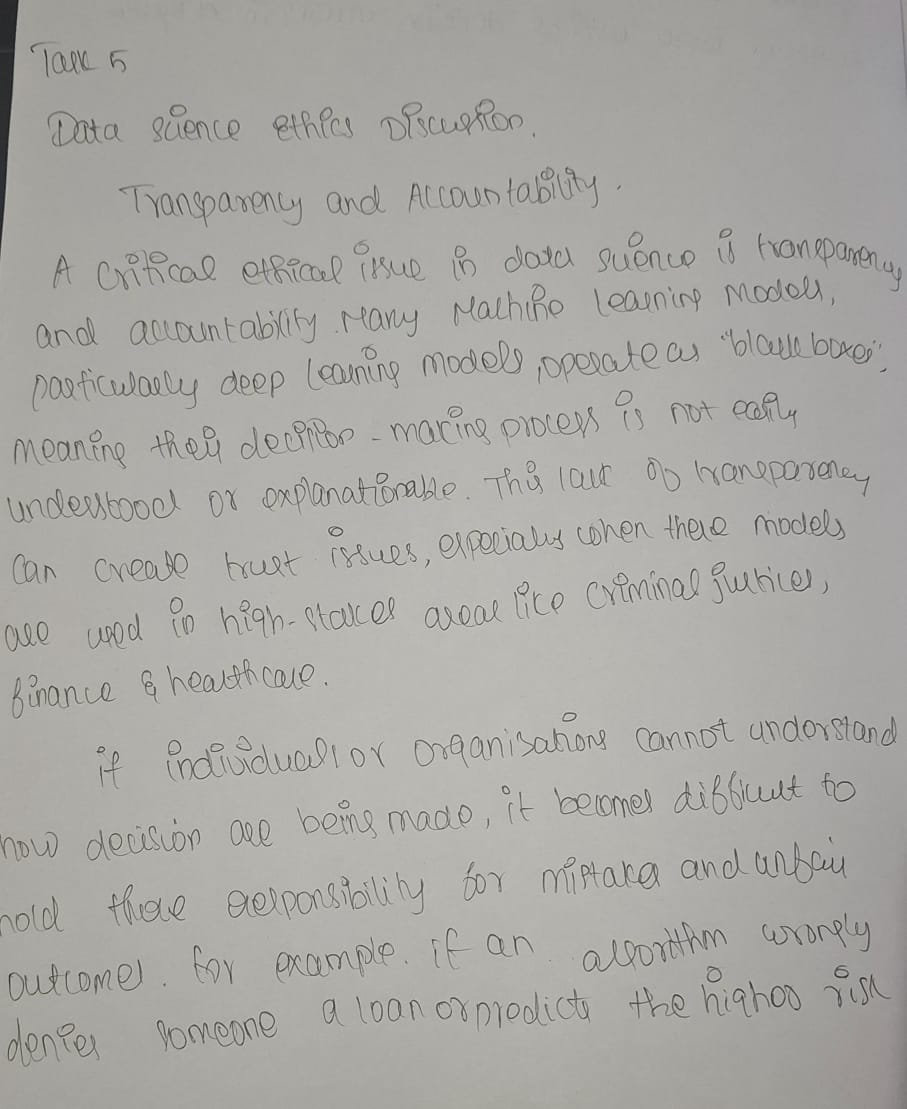 Task 5
Data science ethics Discussion.
Transparency and Accountability.
A critical ethical issue in data science is transparency
and accountability. Many Machine learning Models,
particularly deep learning models, operate as "black boxes",
meaning their decision-making process is not easily
understood or explanationable. This lack of transparency
can create trust issues, especially when these models
are used in high-stakes areas like criminal justices,
finance & healthcare.
if individuals or organisations cannot understand
how decision are being made, it becomes difficult to
hold there responsibility for mistakes and unfair
outcomes. for example. if an algorithm wrongly
denies someone a loan or predicts the higher risk